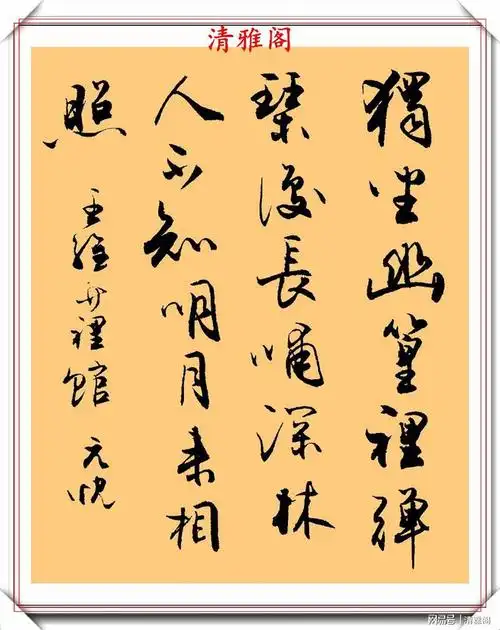 清雅阁
獨坐幽篁裡彈
琴復長嘯深林
人不知明月来相
照
王維竹裡館 元
网易号 | 清雅阁